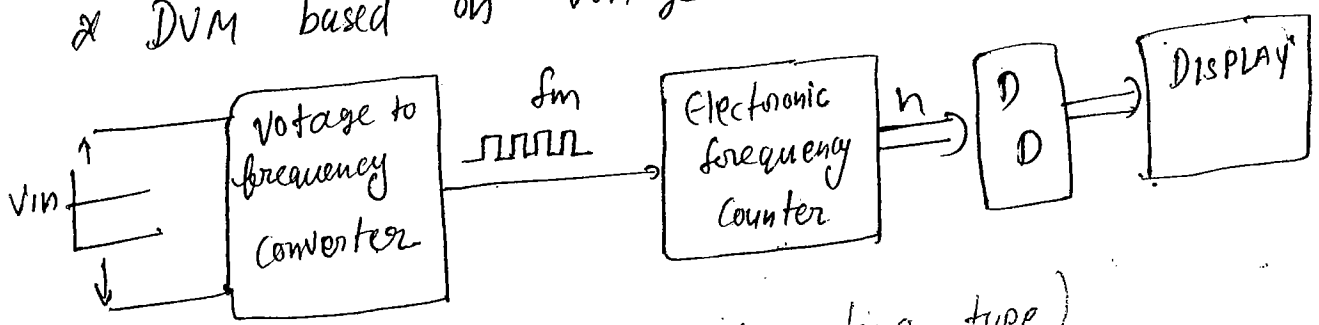 DVM based on
fm
Votage to
frequency
Converter
Vin
Electronic
frequency
Counter
n
D
D
DISPLAY
type)